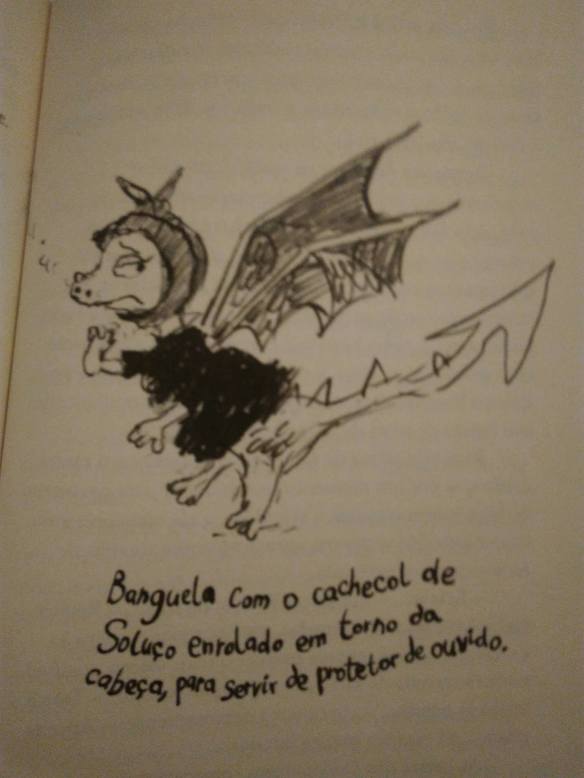 Banguela com o cachecol de
Soluço enrolado em torno da
cabeça, para servir de protetor de ouvido.